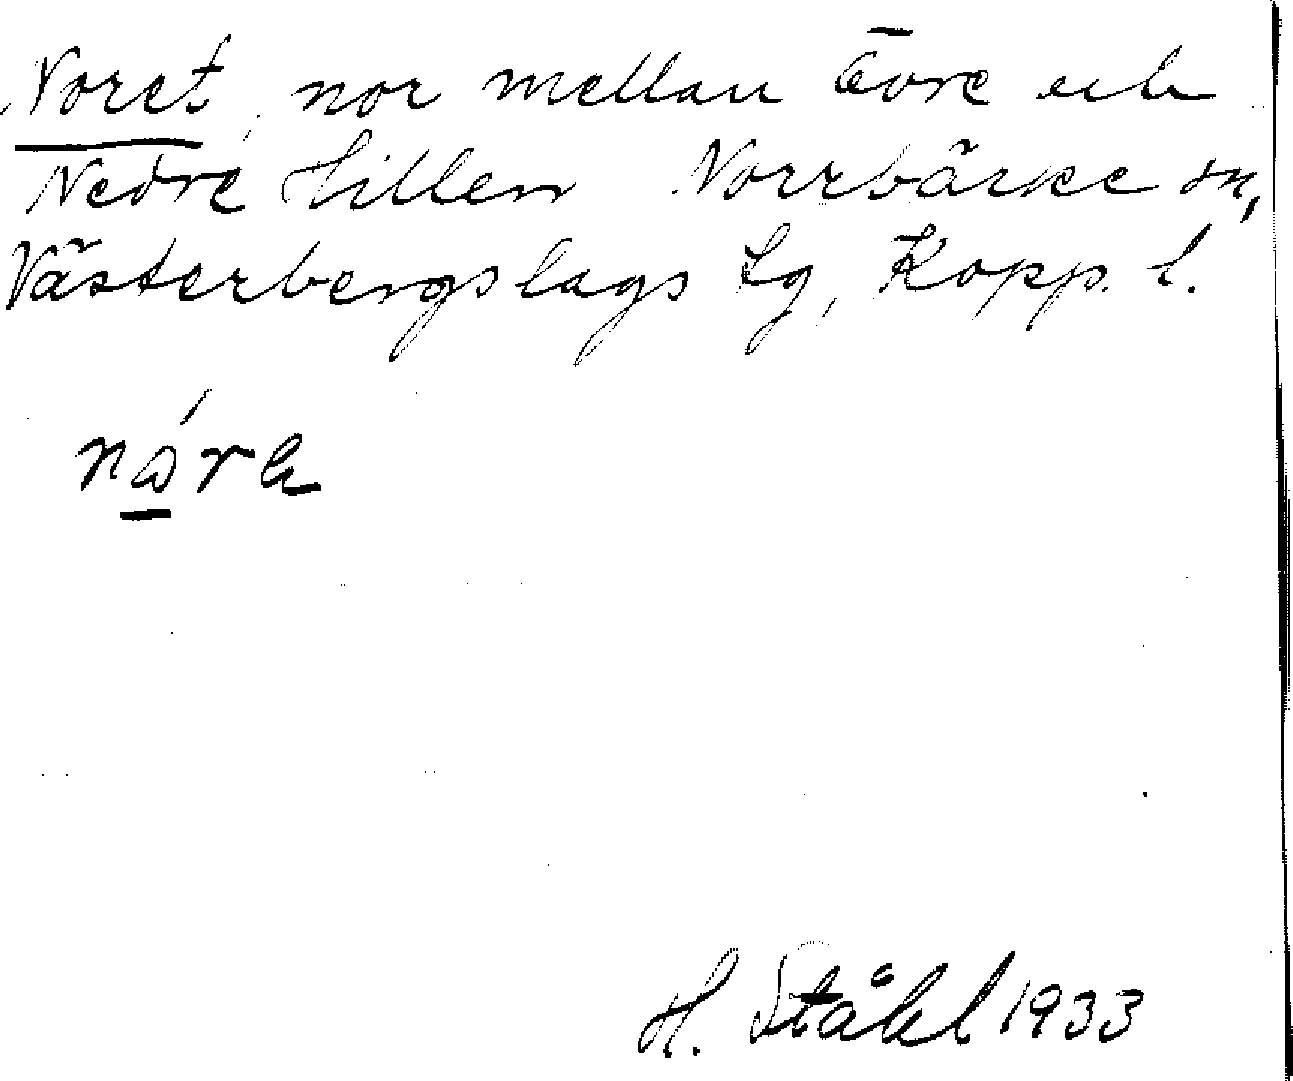 Noret, nor mellan Övre och
Nedre Hillen Norrbärke sn,
Västerbergslags tg, Kopp. l.
nórɐ
H. Ståhl 1933